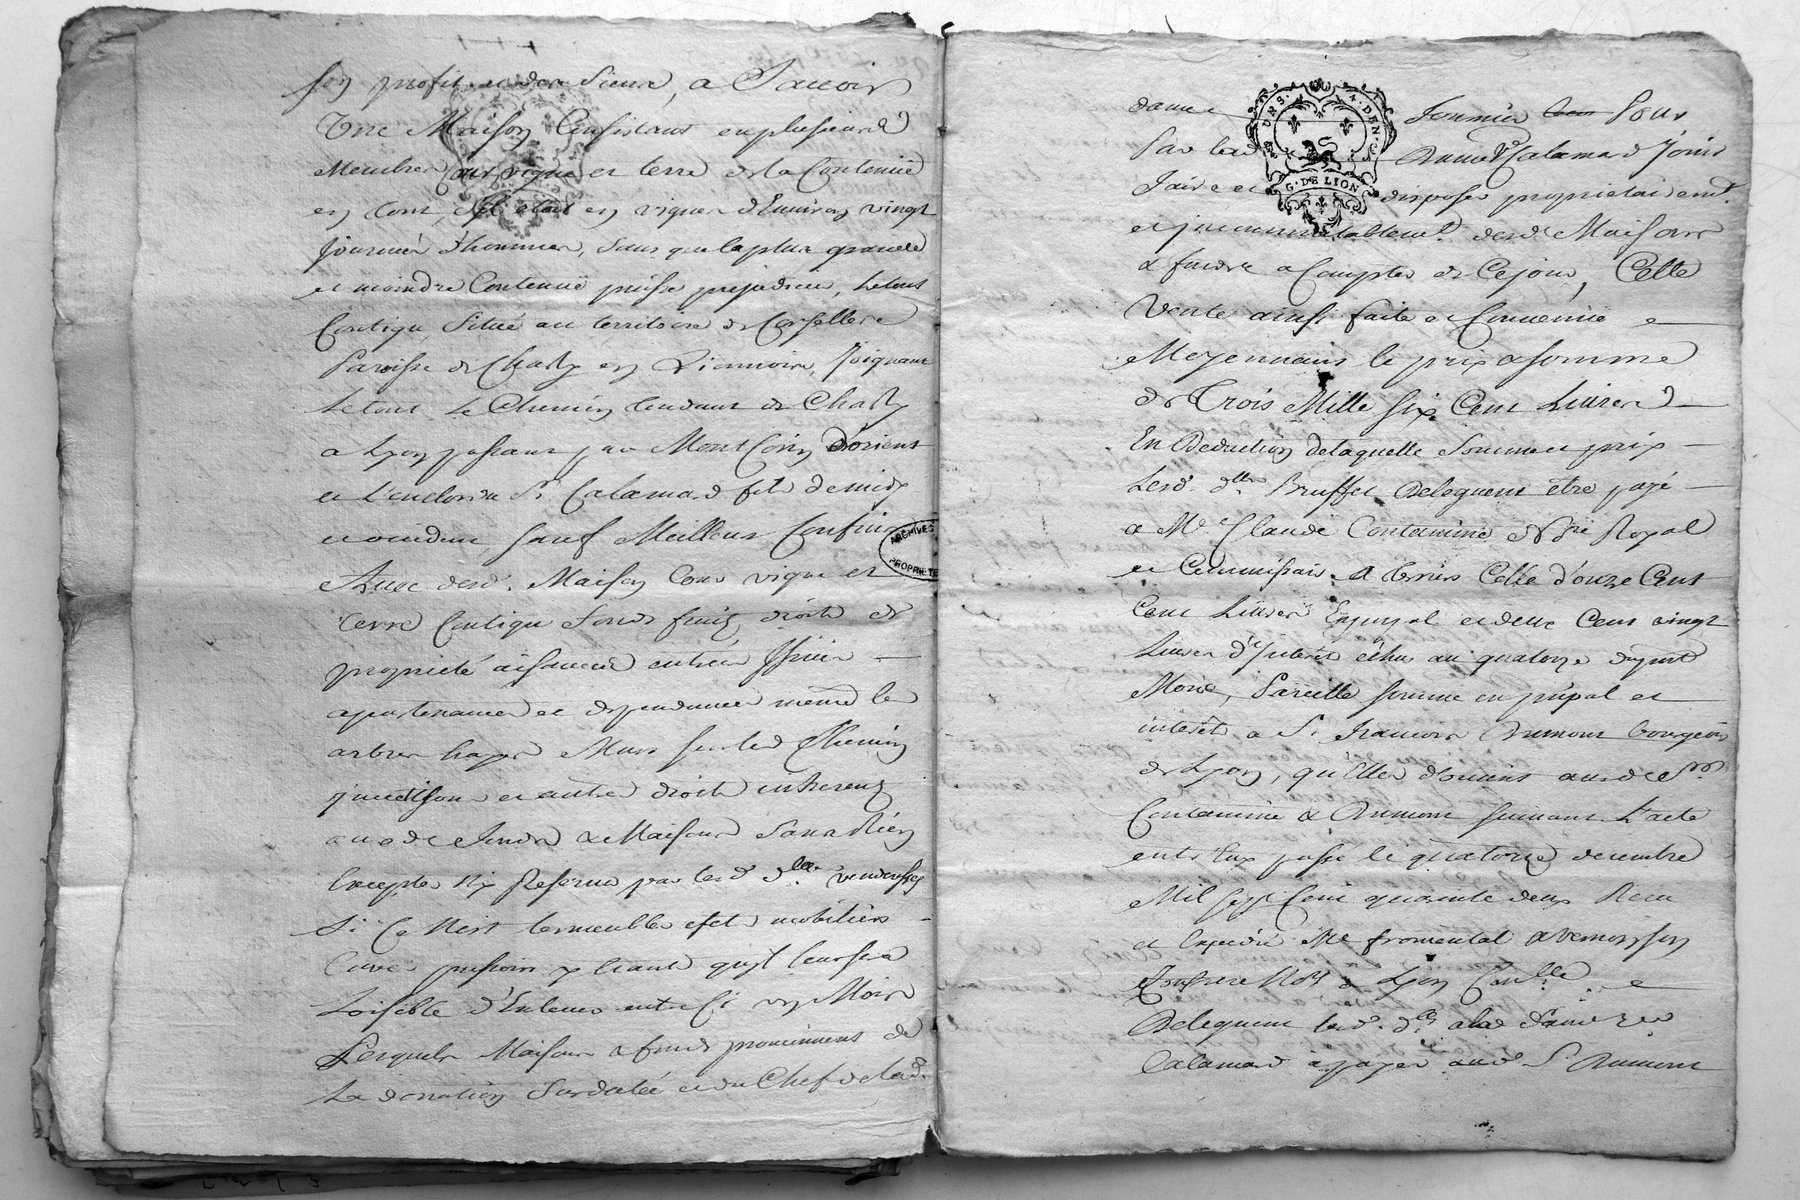 son profit et des siens, a Scavoir
Une Maison Consistant en plusieurs
Membres Cour vigne et terre de la Contenüe
en tout, et en vignes d'Environ vingt
Journées d'hommes, sans que la plus grande
et moindre Contenüe puisse prejudicier, Le tout
Contigu Situé au territoire de
Paroisse de Charly en Lionnois, Joignant
Le tout Le Chemin tendant de Charly
a Lyon passant par Mont d'orient
et L'enclos du Sr Calamard fils de midy
et occident sauf Meilleurs Confins
Avec desd. Maison Cour vigne et
terre Contigu fonds fruits droits de
propriété aisances entrées issües
apartenances et dependances même les
arbres hayes Murs sur led Chemin
et autres droits inherents
auxd. fonds & Maisons Sans Rien
Excepter Ny Reserver par lesd. dlles venderesses
Si Ce N'est les meubles efets mobiliers
Cuves pressoirs qu'il leur sera
Loisible d'Enlever entre Ci un Mois
Lesquels Maisons & fonds proviennent de
La donation Susdatée et du Chef de lad.
dame Pour
Par led Calamard Jouir
faire et disposer proprietairemt.
et jncommutablemt. desd. Maisons
& fonds a Compter de Ce jour, Cette
Vente ainsi faite et Convenüe
Moyennant le prix & somme
de Trois Mille Six Cent Livres
En Deduction de laquelle Somme et prix
Lesd. dlles Brusset Deleguent être payé
a Me Claude Contamine Royal
et Commissaire A terriers Celle d'onze Cent
Cent Livres En pnpal et deux Cent vingt
Livres d'Interêt échus au quatorze du pnt
Mois, Pareille somme en pnpal et
interêt a Sr François Dumont bourgeois
de Lyon, qu'Elles doivent auxd. Srs
Contamine & Dumont suivant L'acte
entr'Eux passé le quatorze decembre
Mil Sept Cent quarante deux Recu
et Expedié Me fromental &
Confrere Notr a Lyon
Deleguent lesd. dlles
Calamard a payer aud Sr Dumont
G. DE LION
ARCHIVES
PROPRIETE